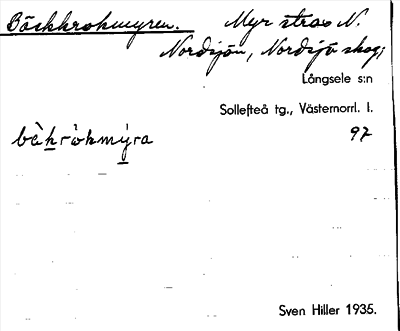 Bäckkrokmyren. Myr strax N.
Nordsjön, Nordsjö skog;
Långsele s:n
Sollefteå tg., Västernorrl. l.
bèkròkmýra 97
Sven Hiller 1935.